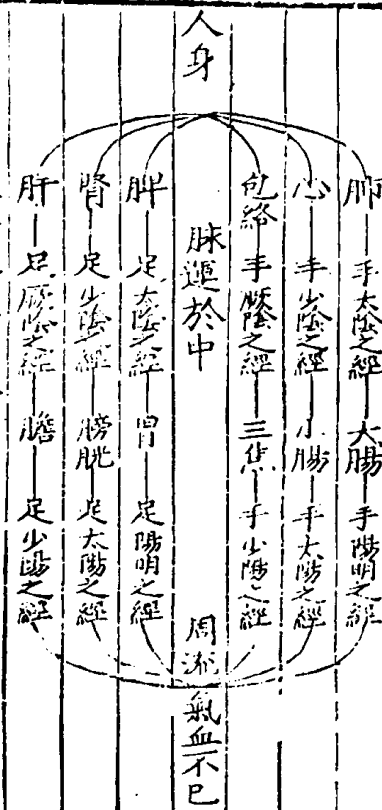 肺 手太陰之經 大腸 手陽明之經
心 手少陰之經 小腸 手太陽之經
包絡 手厥陰之經 三焦 手少陽之經
人身 脉運於中 周流氣血不已
脾 足太陰之經 胃 足陽明之經
腎 足少陰之經 膀胱 足太陽之經
肝 足厥陰之經 膽 足少陽之經